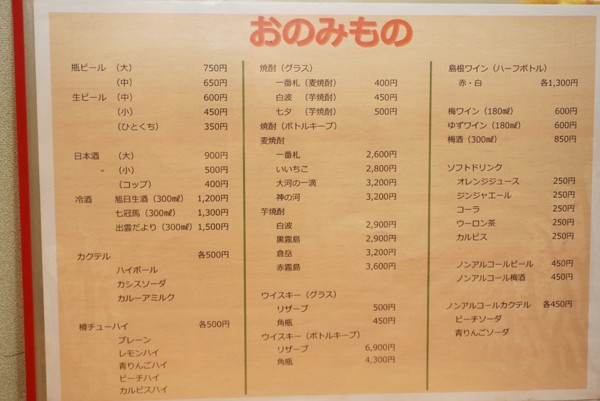 おのみもの
瓶ビール （大） 750円
（中） 650円
生ビール （中） 600円
（小） 450円
（ひとくち） 350円
日本酒 （大） 900円
〃 （小） 500円
（コップ） 400円
冷酒 旭日生酒（300㎖） 1,200円
七冠馬（300㎖） 1,300円
出雲だより（300㎖） 1,500円
カクテル 各500円
ハイボール
カシスソーダ
カルーアミルク
樽チューハイ 各500円
プレーン
レモンハイ
青りんごハイ
ピーチハイ
カルピスハイ
焼酎（グラス）
一番札（麦焼酎） 400円
白波 （芋焼酎） 450円
七夕 （芋焼酎） 500円
焼酎（ボトルキープ）
麦焼酎
一番札 2,600円
いいちこ 2,800円
大河の一滴 3,200円
神の河 3,200円
芋焼酎
白波 2,900円
黒霧島 2,900円
倉岳 3,200円
赤霧島 3,600円
ウイスキー（グラス）
リザーブ 500円
角瓶 450円
ウイスキー（ボトルキープ）
リザーブ 6,900円
角瓶 4,300円
島根ワイン（ハーフボトル）
赤・白 各1,300円
梅ワイン（180㎖） 600円
ゆずワイン（180㎖） 600円
梅酒（300㎖） 850円
ソフトドリンク
オレンジジュース 250円
ジンジャエール 250円
コーラ 250円
ウーロン茶 250円
カルピス 250円
ノンアルコールビール 450円
ノンアルコール梅酒 450円
ノンアルコールカクテル 各450円
ピーチソーダ
青りんごソーダ